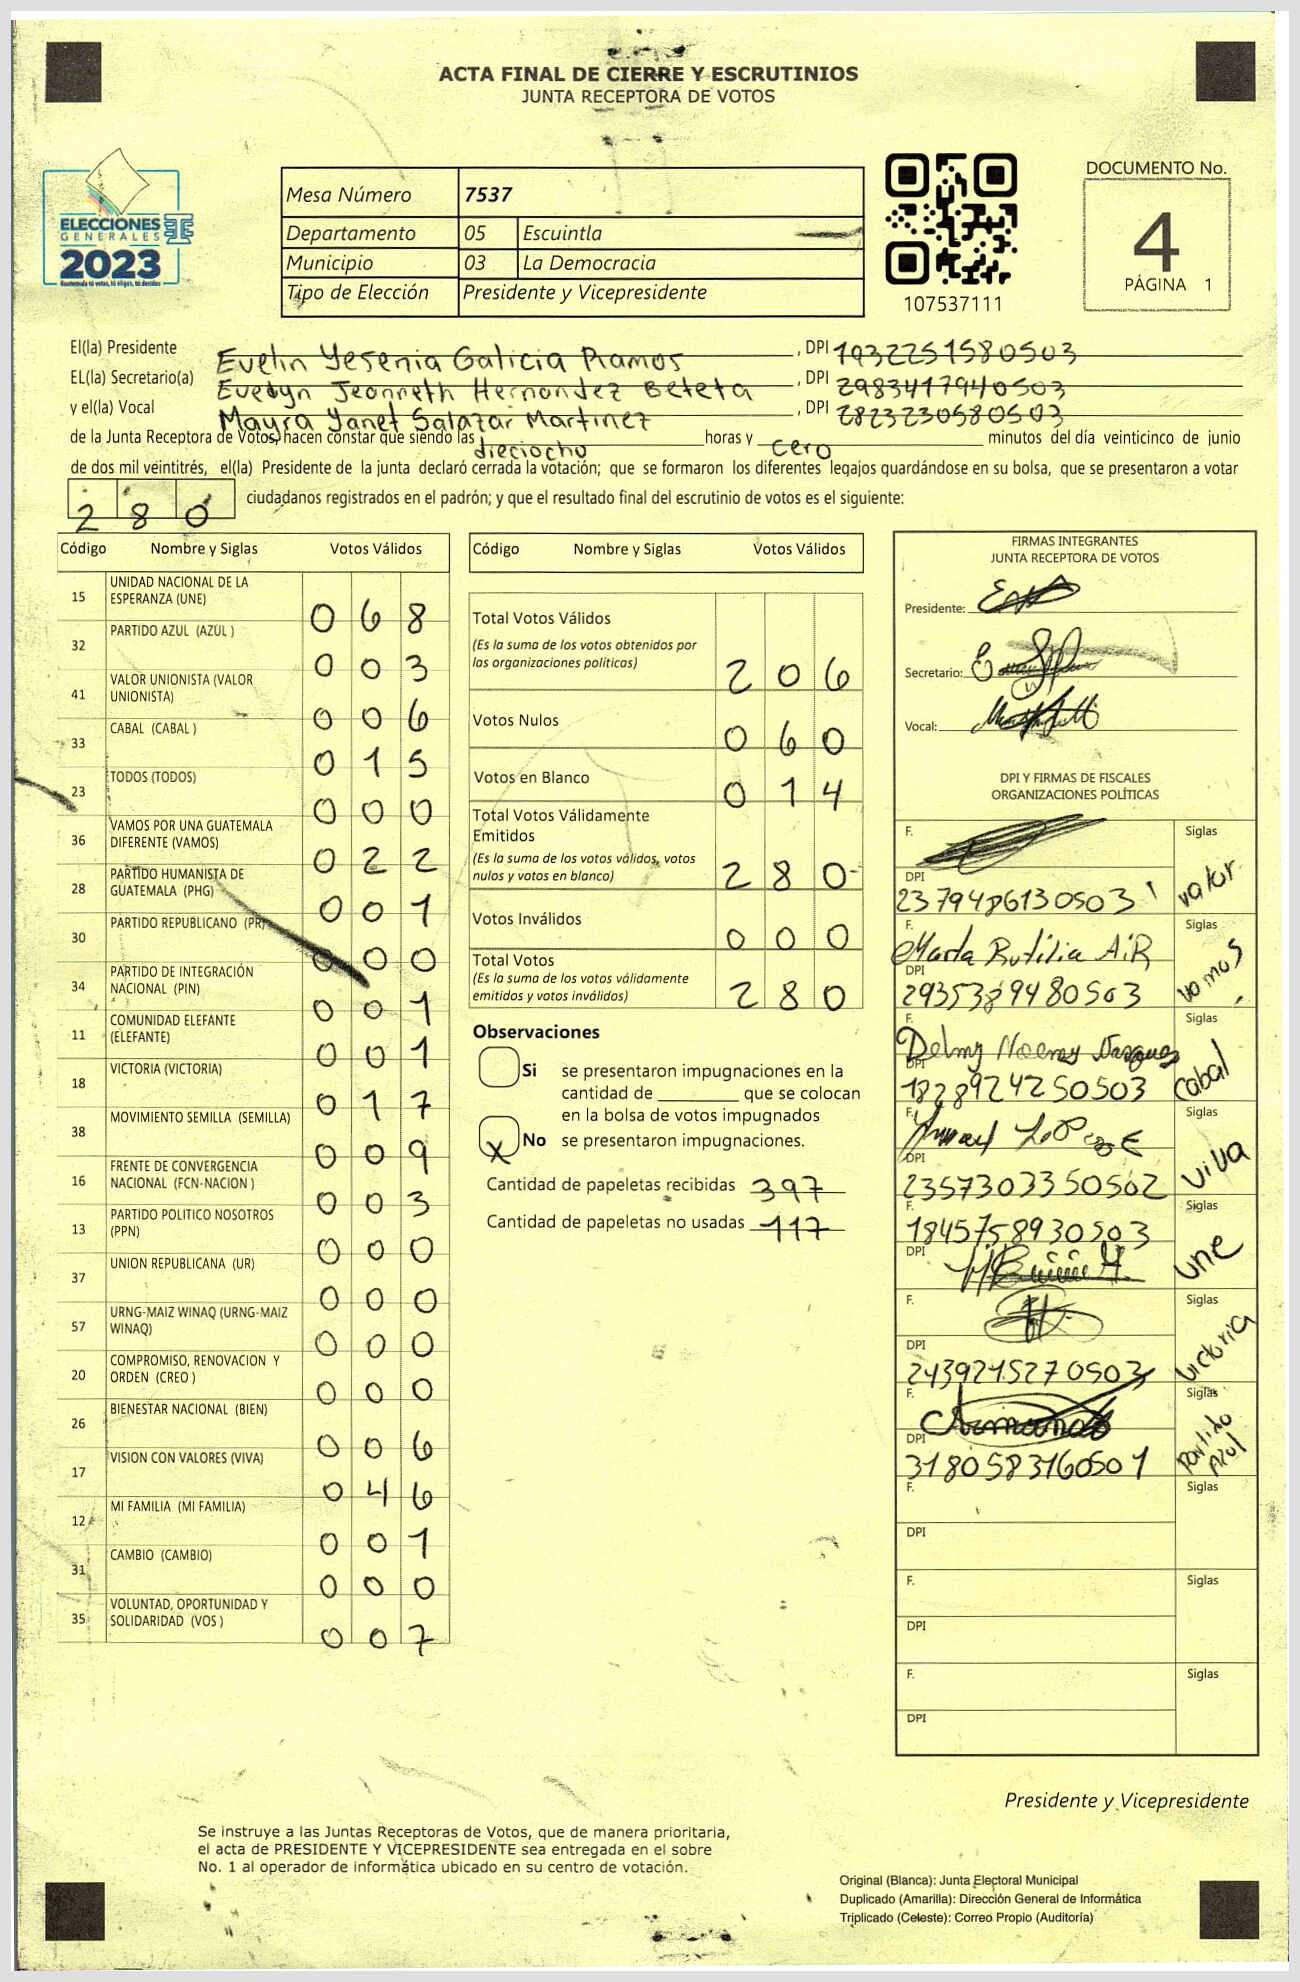 ACTA FINAL DE CIERRE Y ESCRUTINIOS
JUNTA RECEPTORA DE VOTOS
ELECCIONES
GENERALES
2023
Guatemala tú votas, tú eliges, tú decides
Mesa Número 7537
Departamento 05 Escuintla
Municipio 03 La Democracia
Tipo de Elección Presidente y Vicepresidente
107537111
DOCUMENTO No.
4
PÁGINA 1
El(la) Presidente Evelin Yesenia Galicia Ramos , DPI 1932251580503
EL(la) Secretario(a) Evelyn Jeanneth Hernandez Beteta , DPI 2983417940503
y el(la) Vocal Mayra Yanet Salazar Martinez , DPI 2823230580503
de la Junta Receptora de Votos, hacen constar que siendo las dieciocho horas y cero minutos del día veinticinco de junio
de dos mil veintitrés, el(la) Presidente de la junta declaró cerrada la votación; que se formaron los diferentes legajos guardándose en su bolsa, que se presentaron a votar
280 ciudadanos registrados en el padrón; y que el resultado final del escrutinio de votos es el siguiente:
Código Nombre y Siglas Votos Válidos
15 UNIDAD NACIONAL DE LA ESPERANZA (UNE) 068
32 PARTIDO AZUL (AZUL ) 003
41 VALOR UNIONISTA (VALOR UNIONISTA) 006
33 CABAL (CABAL ) 015
23 TODOS (TODOS) 000
36 VAMOS POR UNA GUATEMALA DIFERENTE (VAMOS) 022
28 PARTIDO HUMANISTA DE GUATEMALA (PHG) 001
30 PARTIDO REPUBLICANO (PR) 000
34 PARTIDO DE INTEGRACIÓN NACIONAL (PIN) 001
11 COMUNIDAD ELEFANTE (ELEFANTE) 001
18 VICTORIA (VICTORIA) 017
38 MOVIMIENTO SEMILLA (SEMILLA) 009
16 FRENTE DE CONVERGENCIA NACIONAL (FCN-NACION ) 003
13 PARTIDO POLITICO NOSOTROS (PPN) 000
37 UNION REPUBLICANA (UR) 000
57 URNG-MAIZ WINAQ (URNG-MAIZ WINAQ) 000
20 COMPROMISO, RENOVACION Y ORDEN (CREO ) 000
26 BIENESTAR NACIONAL (BIEN) 006
17 VISION CON VALORES (VIVA) 046
12 MI FAMILIA (MI FAMILIA) 001
31 CAMBIO (CAMBIO) 000
35 VOLUNTAD, OPORTUNIDAD Y SOLIDARIDAD (VOS ) 007
Código Nombre y Siglas Votos Válidos
Total Votos Válidos
(Es la suma de los votos obtenidos por
las organizaciones políticas) 206
Votos Nulos 060
Votos en Blanco 014
Total Votos Válidamente
Emitidos
(Es la suma de los votos válidos, votos
nulos y votos en blanco) 280
Votos Inválidos 000
Total Votos
(Es la suma de los votos válidamente
emitidos y votos inválidos) 280
Observaciones
Si se presentaron impugnaciones en la
cantidad de ________ que se colocan
en la bolsa de votos impugnados
X No se presentaron impugnaciones.
Cantidad de papeletas recibidas 397
Cantidad de papeletas no usadas 117
FIRMAS INTEGRANTES
JUNTA RECEPTORA DE VOTOS
Presidente:
Secretario:
Vocal:
DPI Y FIRMAS DE FISCALES
ORGANIZACIONES POLÍTICAS
F. Siglas
DPI 2379486130503 valor
F. Marta Rutilia A.R Siglas
DPI 2935389480503 vamos
F. Delmy Noemy Vasquez Siglas
DPI 1828924250503 Cabal
F. Siglas
DPI 2357303350502 viva
F. 1845758930503 Siglas
DPI une
F. Siglas
DPI 2439215270503 victoria
F. Siglas
DPI 3180583160501 Partido Azul
F. Siglas
DPI
F. Siglas
DPI
F. Siglas
DPI
Presidente y Vicepresidente
Se instruye a las Juntas Receptoras de Votos, que de manera prioritaria,
el acta de PRESIDENTE Y VICEPRESIDENTE sea entregada en el sobre
No. 1 al operador de informática ubicado en su centro de votación.
Original (Blanca): Junta Electoral Municipal
Duplicado (Amarilla): Dirección General de Informática
Triplicado (Celeste): Correo Propio (Auditoría)